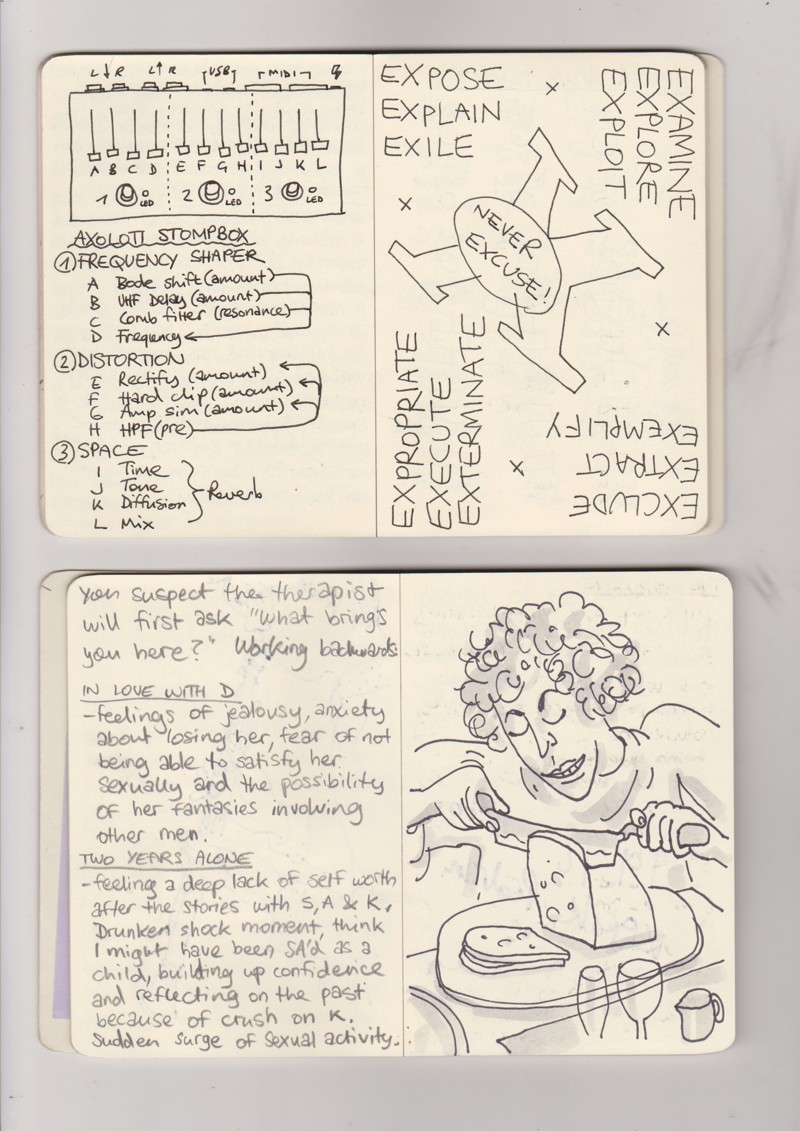 L↓R L↑R USB MIDI
A B C D E F G H I J K L
1 LED 2 LED 3 LED
AXOLOTI STOMPBOX
① FREQUENCY SHAPER
A Bode shift (amount)
B VHF Delay (amount)
C Comb filter (resonance)
D Frequency
② DISTORTION
E Rectify (amount)
F Hard clip (amount)
G Amp sim (amount)
H HPF (pre)
③ SPACE
I Time
J Tone
K Diffusion
L Mix
Reverb
EXPOSE
EXPLAIN
EXILE
EXAMINE
EXPLORE
EXPLOIT
NEVER
EXCUSE!
EXPROPRIATE
EXECUTE
EXTERMINATE
EXCLUDE
EXTRACT
EXEMPLIFY
you suspect the therapist
will first ask "What brings
you here?" Working backwards
IN LOVE WITH D
-feelings of jealousy, anxiety
about losing her, fear of not
being able to satisfy her
sexually and the possibility
of her fantasies involving
other men.
TWO YEARS ALONE
-feeling a deep lack of self worth
after the stories with S, A & K.
Drunken shock moment, think
I might have been SA'd as a
child, building up confidence
and reflecting on the past
because of crush on K.
Sudden surge of sexual activity.